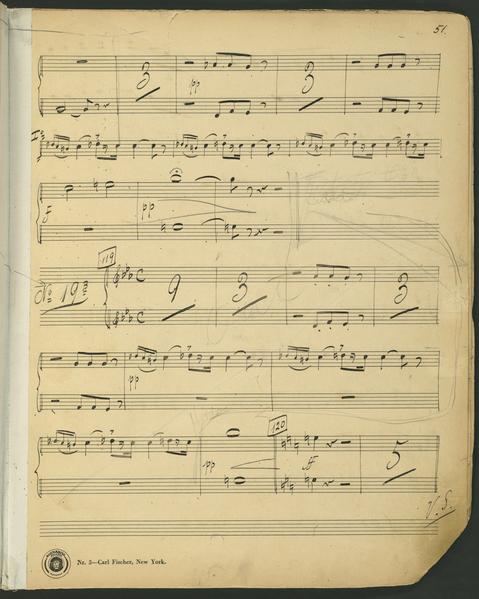 51.
3 pp 3
Is
f pp
119
No 19a 9 3 3
pp
120
pp ff 5
V.S.
Nr. 3—Carl Fischer, New York.